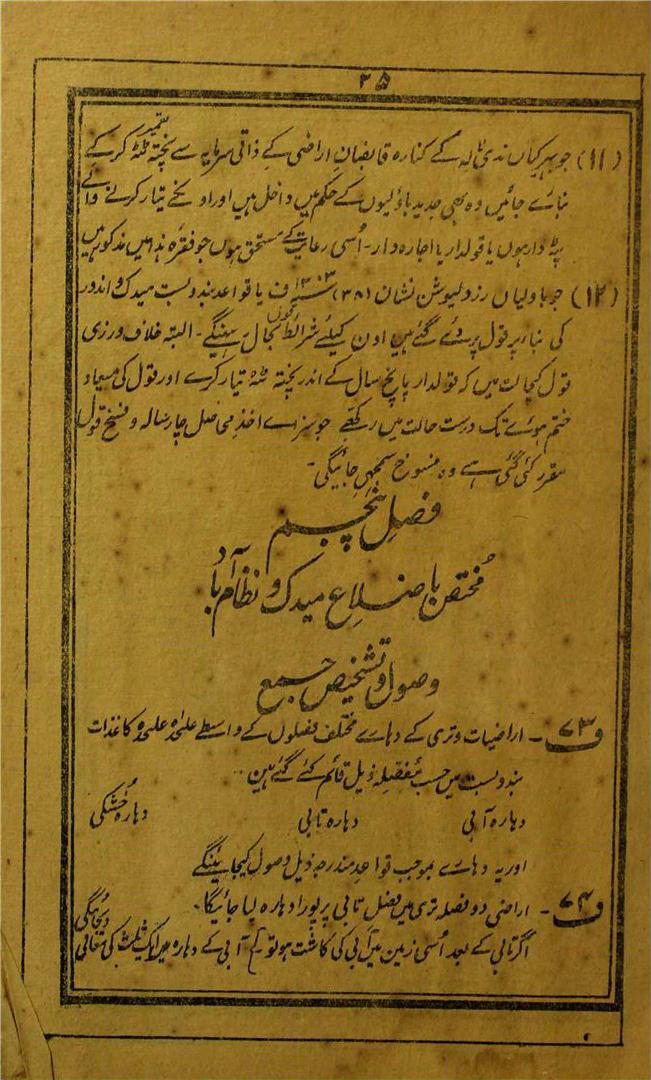 ۳۵
(۱۱) جو ہیریاں ندی نالہ کے کنارہ قابضان اراضی کے ذاتی سرمایہ سے پختہ ٹہٹہ کر کے تعمیر
بنائے جائیں وہ بھی جدید باؤلیوں کے حکم میں داخل ہیں اور انکے تیار کرنے والے
پٹہ دار ہوں یا قولدار یا اجارہ دار۔ اُسی رعایت کے مستحق ہوں جو فقرہ ہذا میں مذکور ہیں
(۱۲) جو باولیاں رزولیوشن نشان (۳۸) ۱۳۰۳ سنہ ف یا قواعد بندوبست میدک و اندور
کی بناء پر قول پر دئے گئے ہیں اون کیلئے شرائط قول بحال رہینگے۔ البتہ خلاف ورزی
قول کیحالت میں کہ قولدار پانچ سال کے اندر پختہ ٹہٹہ تیار کرے اور قول کی میعاد
ختم ہوئے تک درست حالت میں رکھے جو سزاے اخذ محاصل چار سالہ و فسخ قول
مقرر کی گئی ہے وہ منسوخ سمجھی جائیگی۔
فصل پنجم
مختص باضلاع میدک و نظام آباد
وصول و تشخیص جمع
ف۷۳۔ اراضیات و تری کے دہارے مختلف فصلوں کے واسطے علحدہ علحدہ کاغذات
بندوبست میں حسب مفصلہ ذیل قائم کئے گئے ہیں۔
دہارہ آبی دہارہ تابی دہارہ خشکی
اور یہ دہارے بموجب قواعد مندرجہ ذیل وصول کیجائینگے
ف۷۴۔ اراضی دو فصلہ تری میں فصل تابی پر پورا دہارہ لیا جائیگا۔
اگر تابی کے بعد اُسی زمین میں آبی کی کاشت ہو تو آبی کے دہارہ میں ایک ثلث کی معافی دیجائیگی